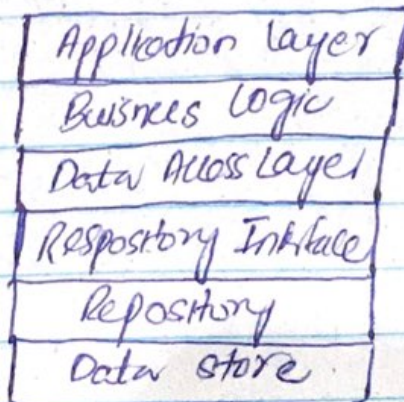 Application layer
Buisnees Logic
Data Access Layer
Respository Interface
Repository
Data store